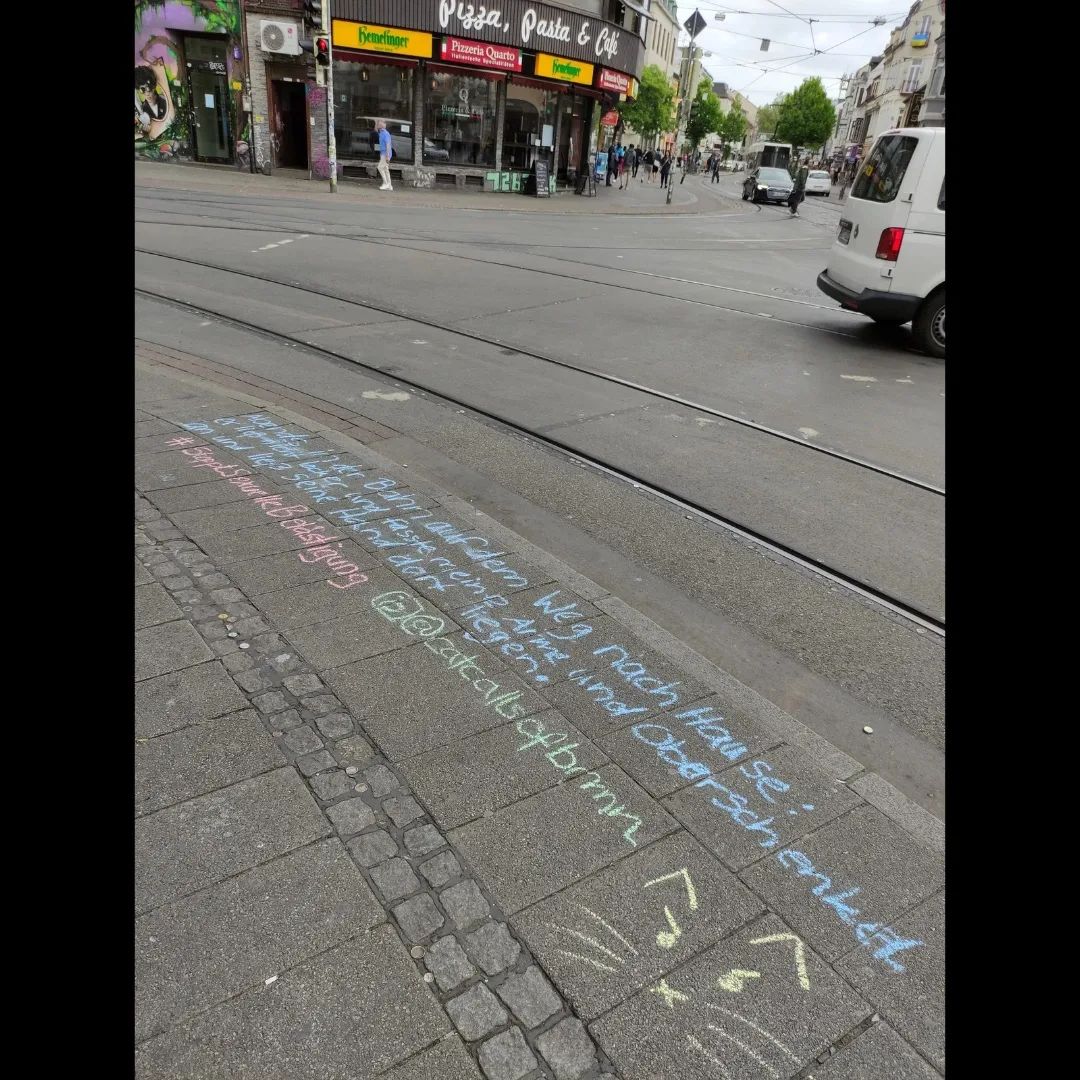 Pizza, Pasta & Café
Hemelinger
Pizzeria Quarto
Italienische Spezialitäten
Hemelinger
Abends in der Bahn auf dem Weg nach Hause:
und fasste meine Arme und Oberschenkel
an und ließ seine Hand dort liegen.
#StopptSexuelleBelästigung
@catcallsofbrmn